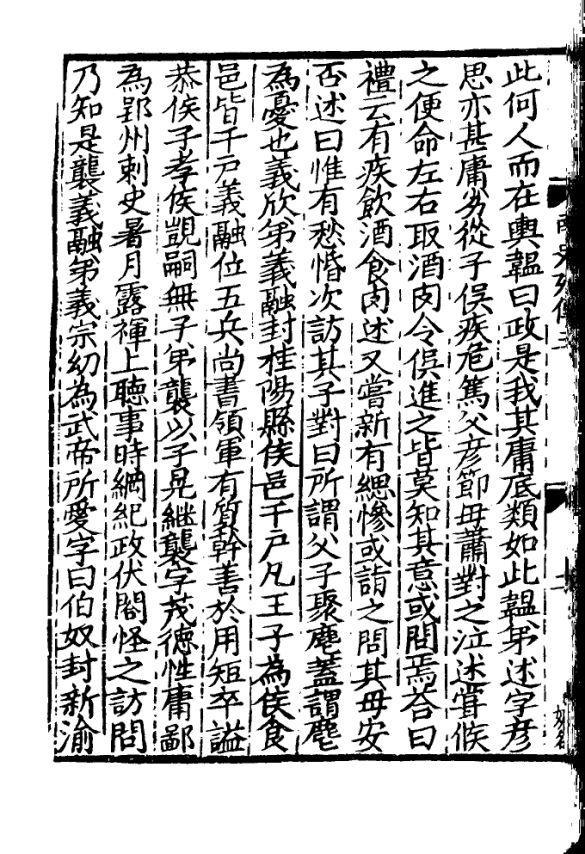 此何人而在輿韞曰政是我其庸底類如此韞弟述字彦
思亦甚庸劣從子俁疾危篤父彦節母蕭對之泣述嘗候
之便命左右取酒肉令俁進之皆莫知其意或問焉荅曰
禮云有疾飲酒食肉述又嘗新有緦慘或詣之問其母安
否述曰惟有愁惛次訪其子對曰所謂父子聚麀蓋謂麀
為憂也義欣弟義融封桂陽縣侯邑千戸凡王子為侯食
邑皆千戸義融位五兵尚書領軍有質幹善於用短卒謚
恭侯子孝侯覬嗣無子弟襲以子晃継襲字茂德性庸鄙
為郢州刺史暑月露褌上聽事時綱紀政伏閤怪之訪問
乃知是襲義融弟義宗幼為武帝所愛字曰伯奴封新渝